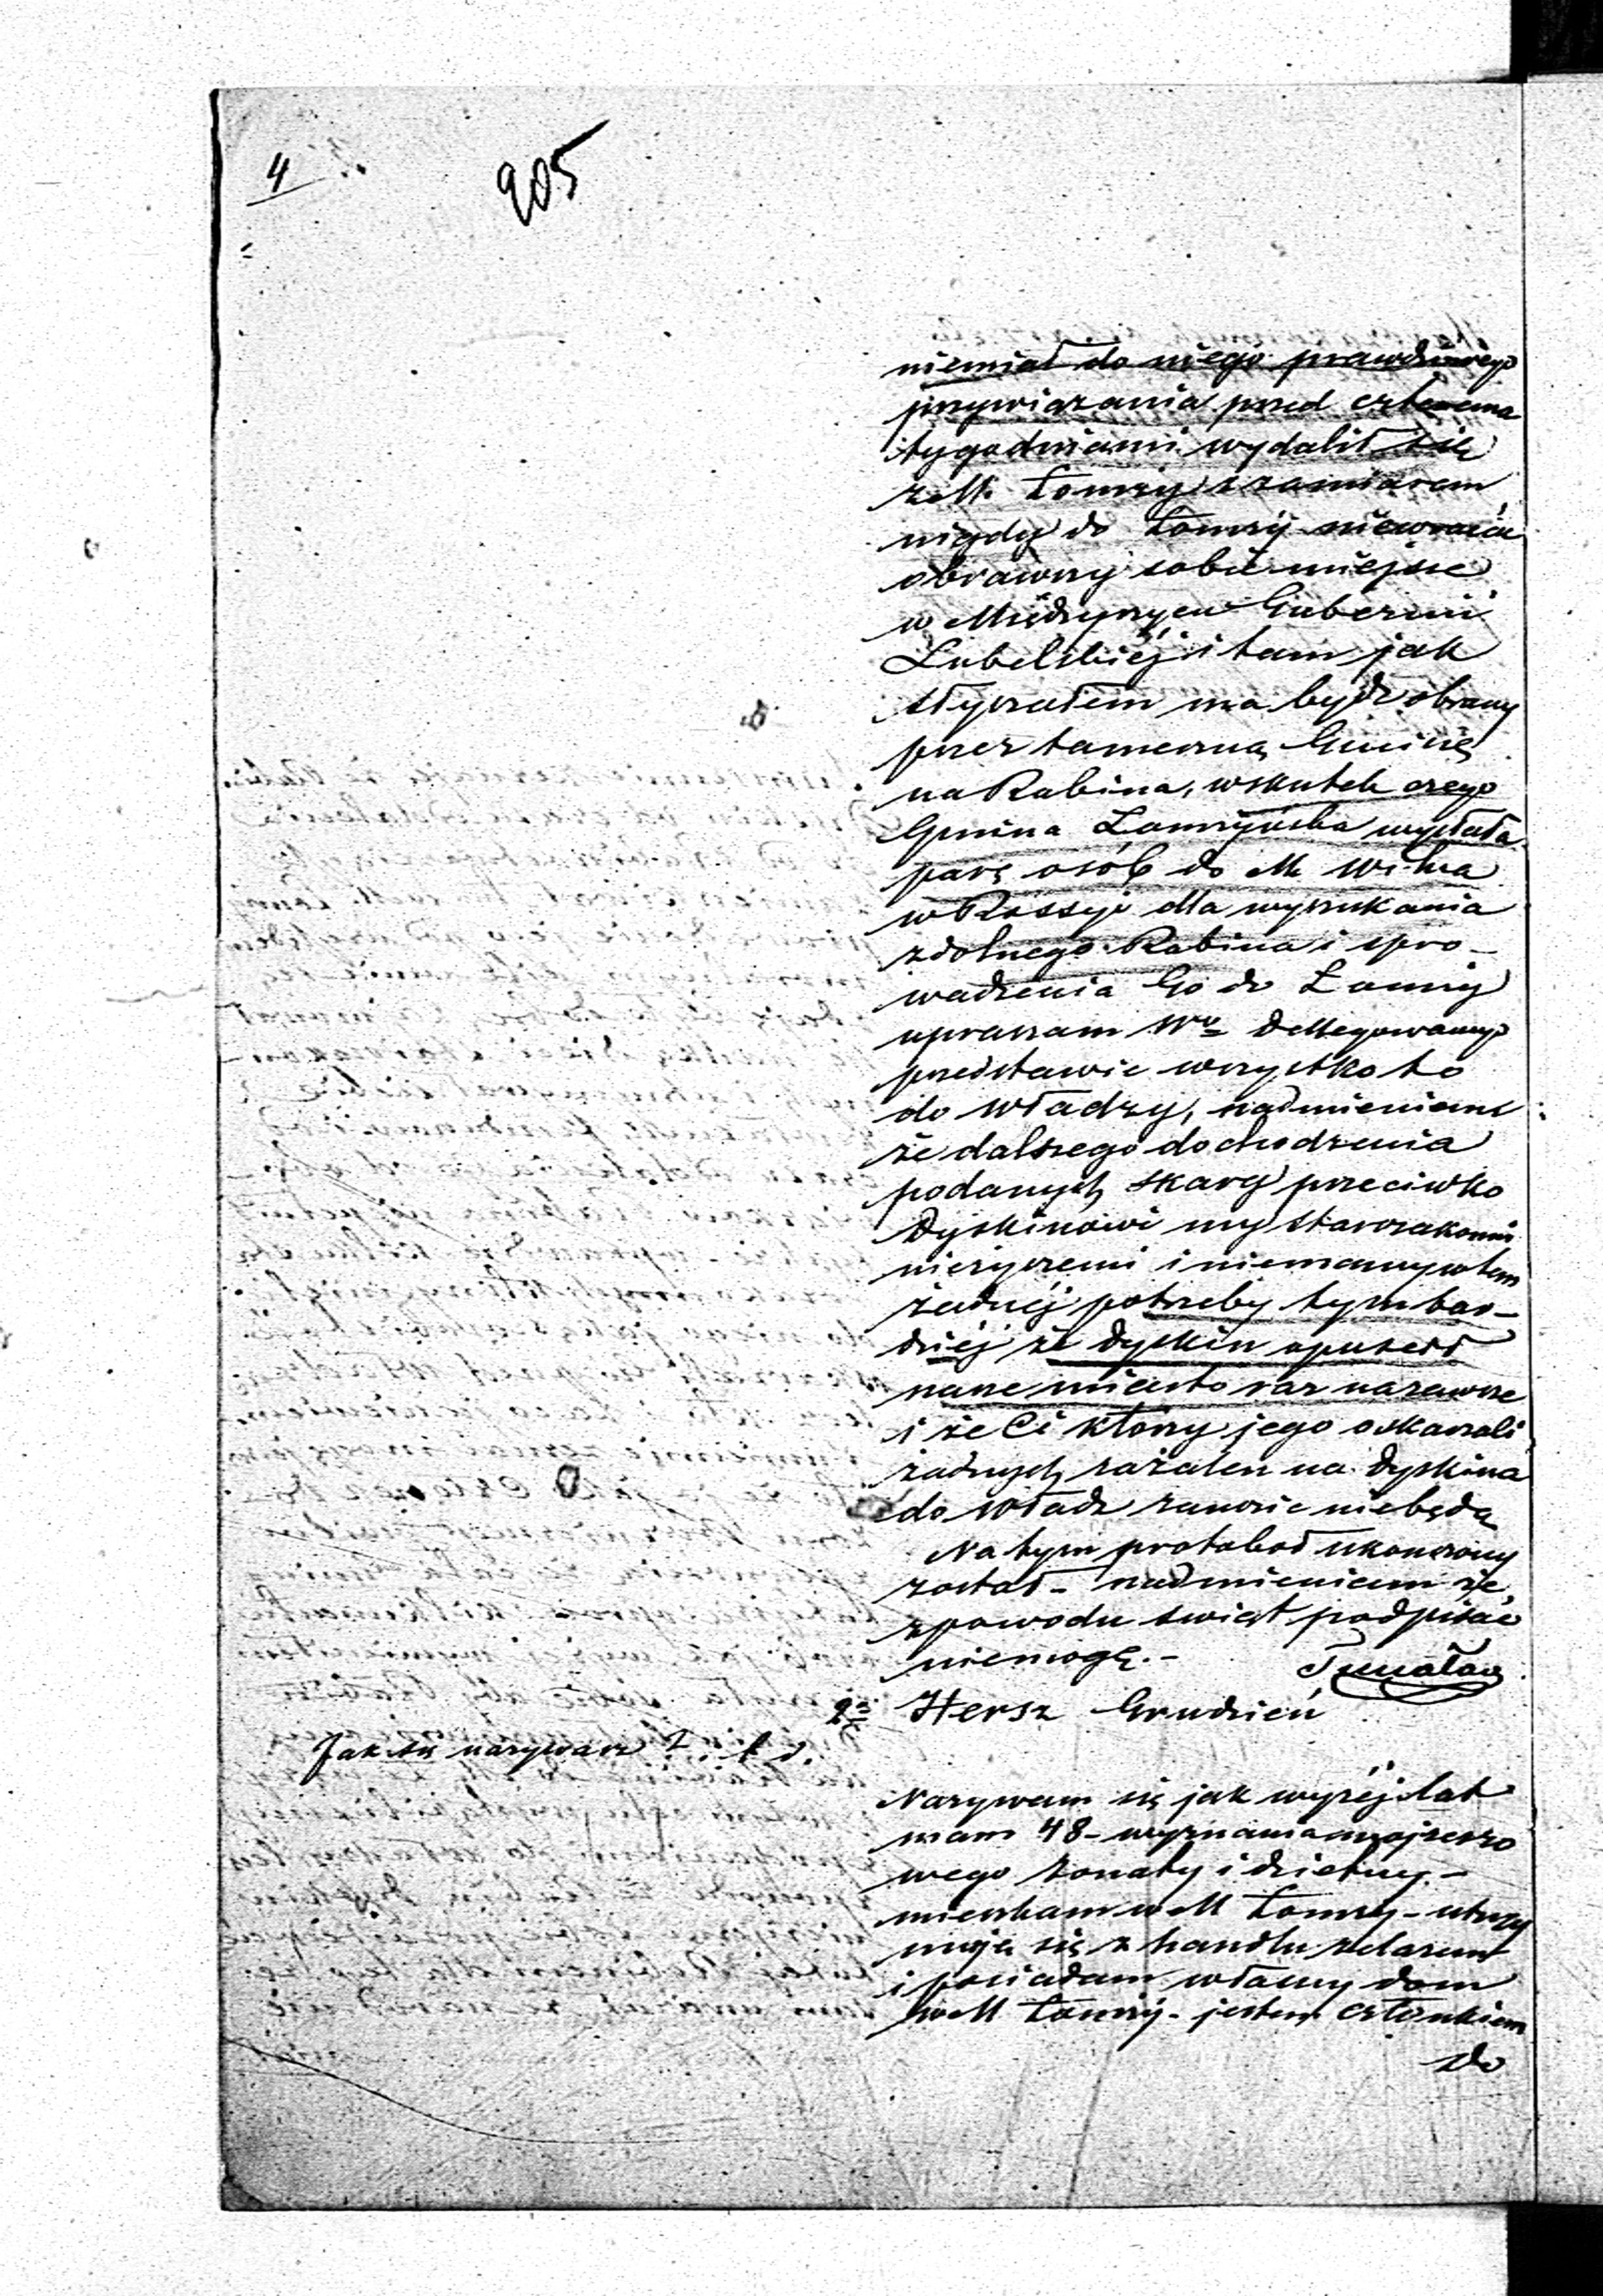 4
205
niemiał do niego prawdziwego
przywiązania przed czterema
tygodniami wydalił się
z M. Łomży z zamiarem
nigdy do Łomży niewracać
obrawszy sobie miejsce
w Międzyrzycu Gubernii
Lubelskiéj i tam jak
słyszałem ma bydź obrany
przez tameczną Gminę
na Rabina, wskutek czego
Gmina Łomżyńska wysłała
parę osób do M. Wilna
w Rossyi dla wyszukania
zdolnego Rabina i spro-
wadzenia Go do Łomży
upraszam Wo Dellegowanego
przedstawić wszystko to
do władzy, nadmieniam
że dalszego dochodzenia
podanych skarg przeciwko
Dyskinowi my starozakonni
nieżyczemi i niemamy wtem
żadnéj potrzeby tym bar-
dziéj że Dyskin opuścił
nasze miasto raz nazawsze
i że Ci którzy jego oskarzali
żadnych zażaleń na Dyskina
do władz zanosić niebędą
Na tym protokoł ukończony
został - nadmieniam że
z powodu świąt podpisać
niemogę.-
2o Hersz Grudzień
Jak się nazywasz? i t d.
Nazywam się jak wyżéj lat
mam 48 - wyznania mojżeszo
wego żonaty i dzietny.-
mieszkam w M Łomży - utrzy
muję się z handlu żelazem
i posiadam własny dom
w M Łomży - jestem członkiem
do